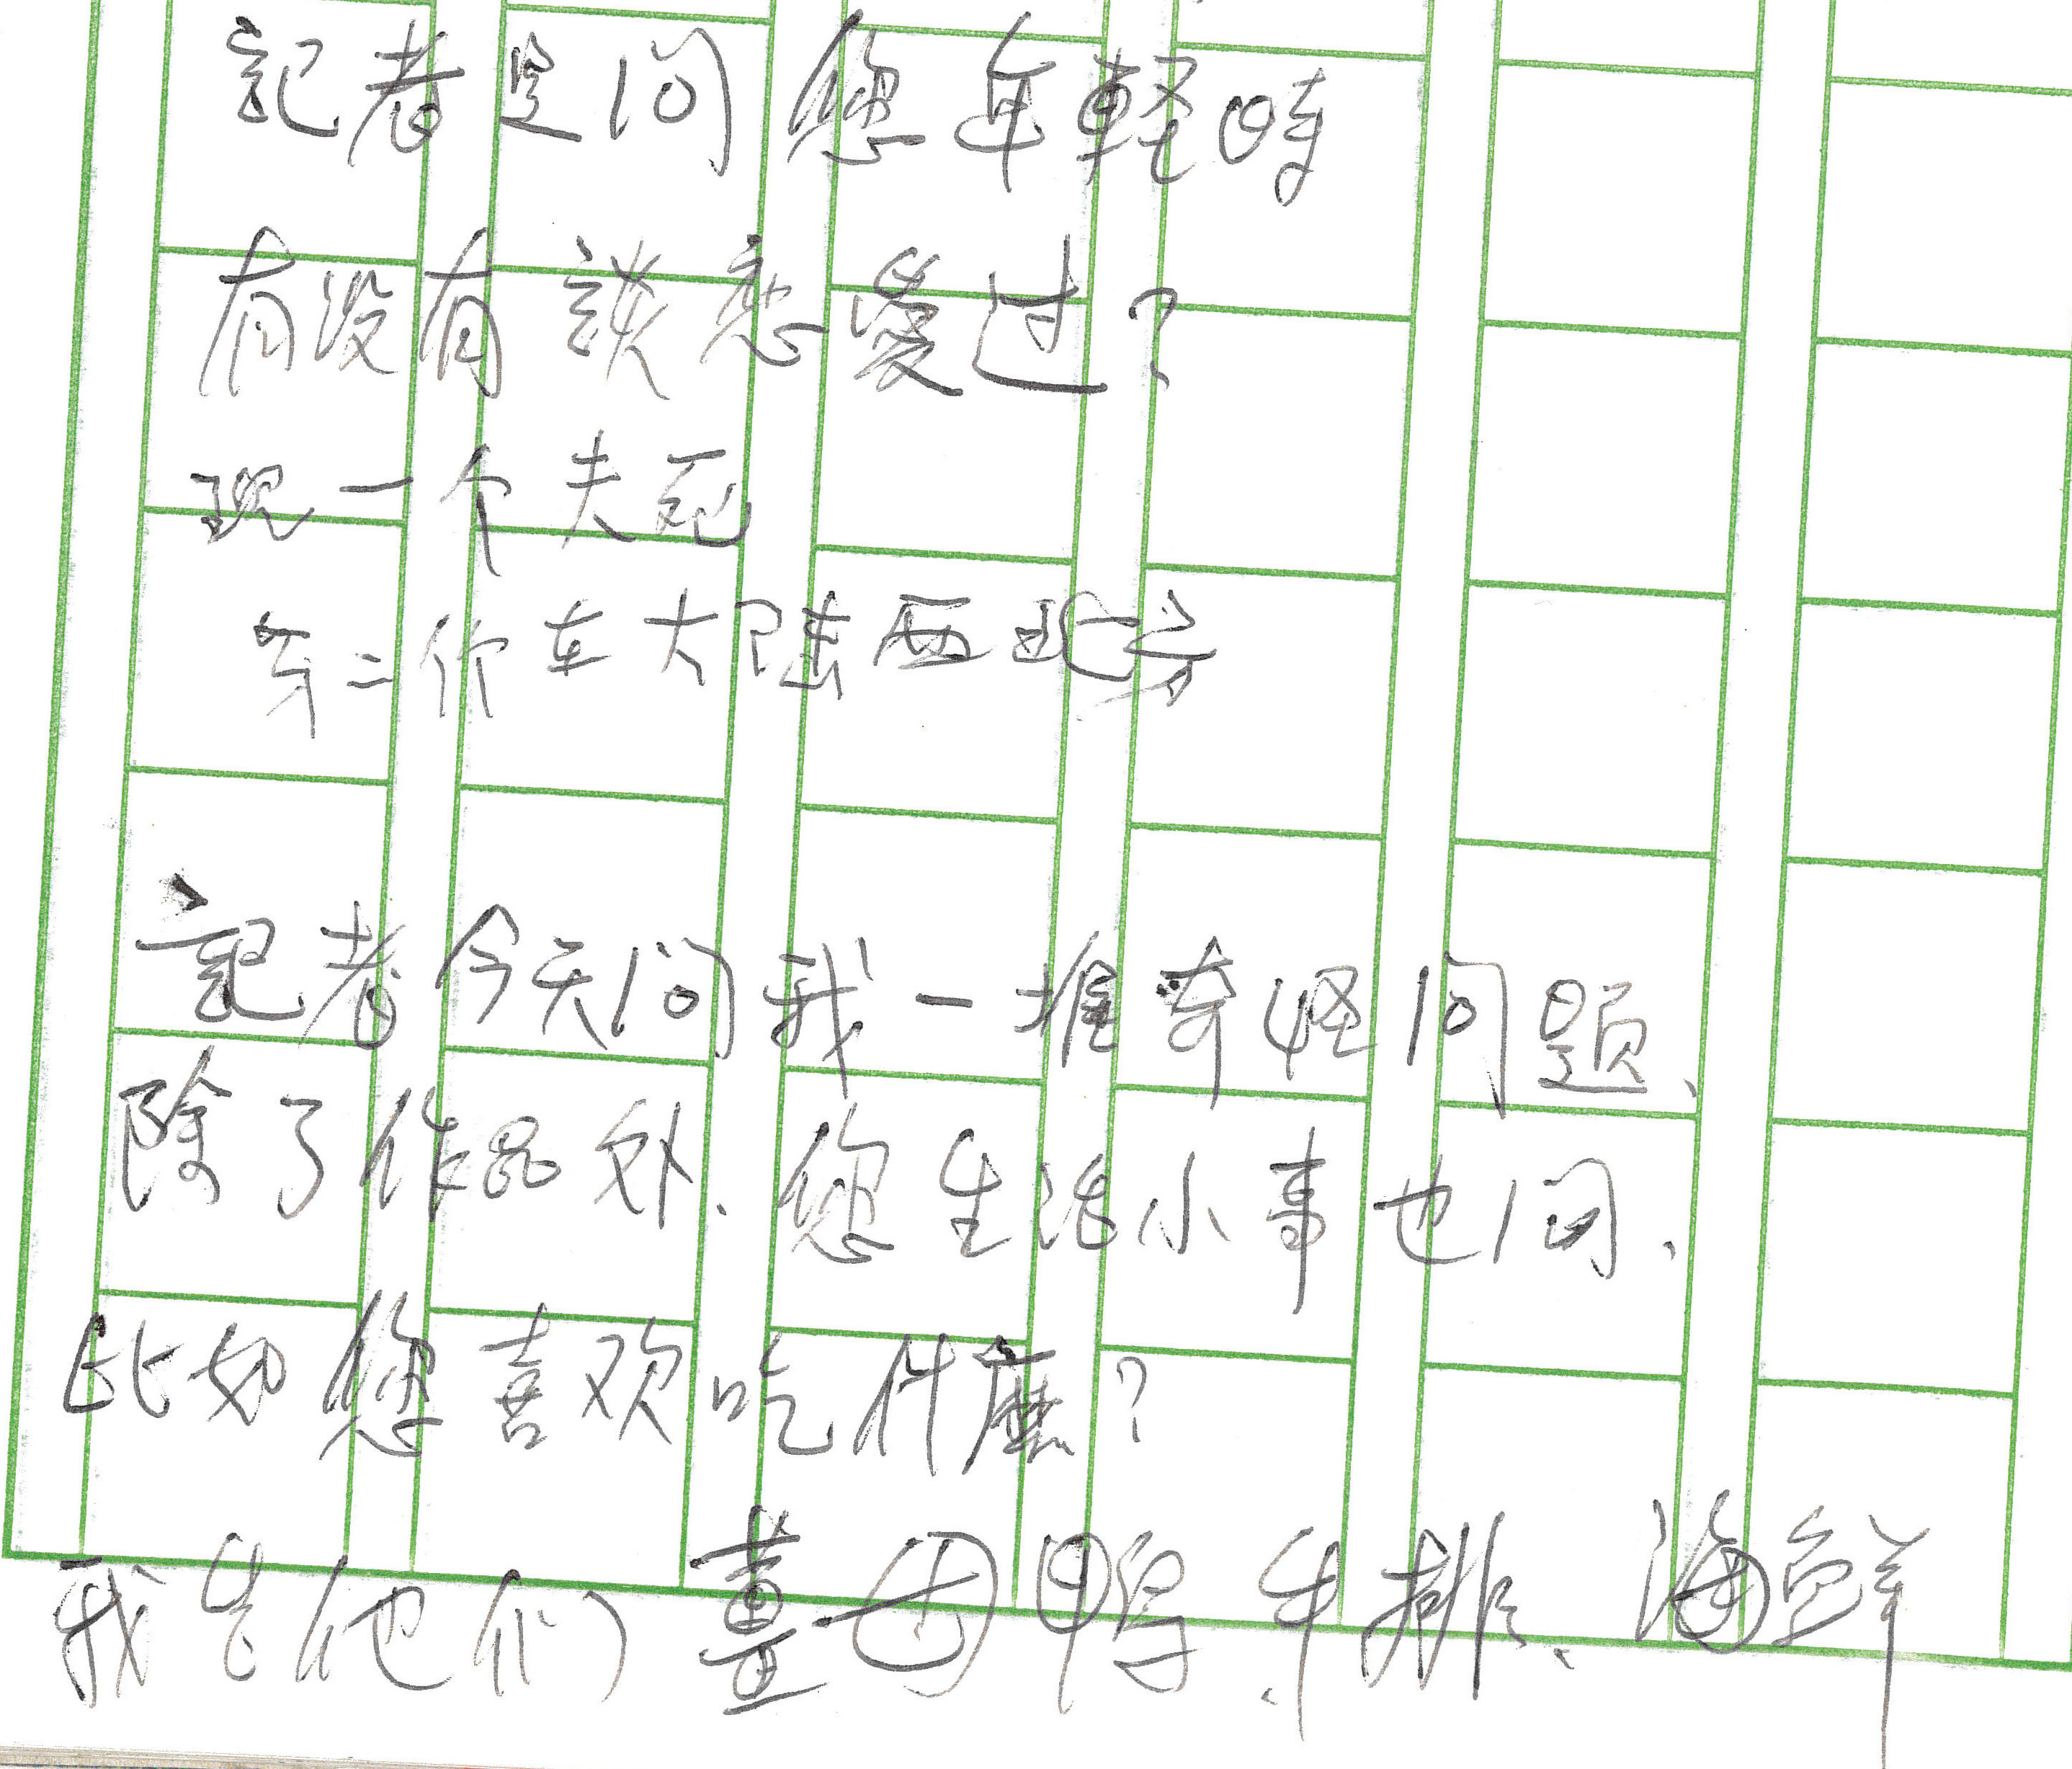 記者是问您年輕時
有没有談恋愛过?
現一个夫死
第二个在大陆西北方
記者今天问我一堆奇怪问题、
除了作品外、您生活小事也问、
比如您喜欢吃什麼?
我告他们薑母鴨、牛排、海鮮